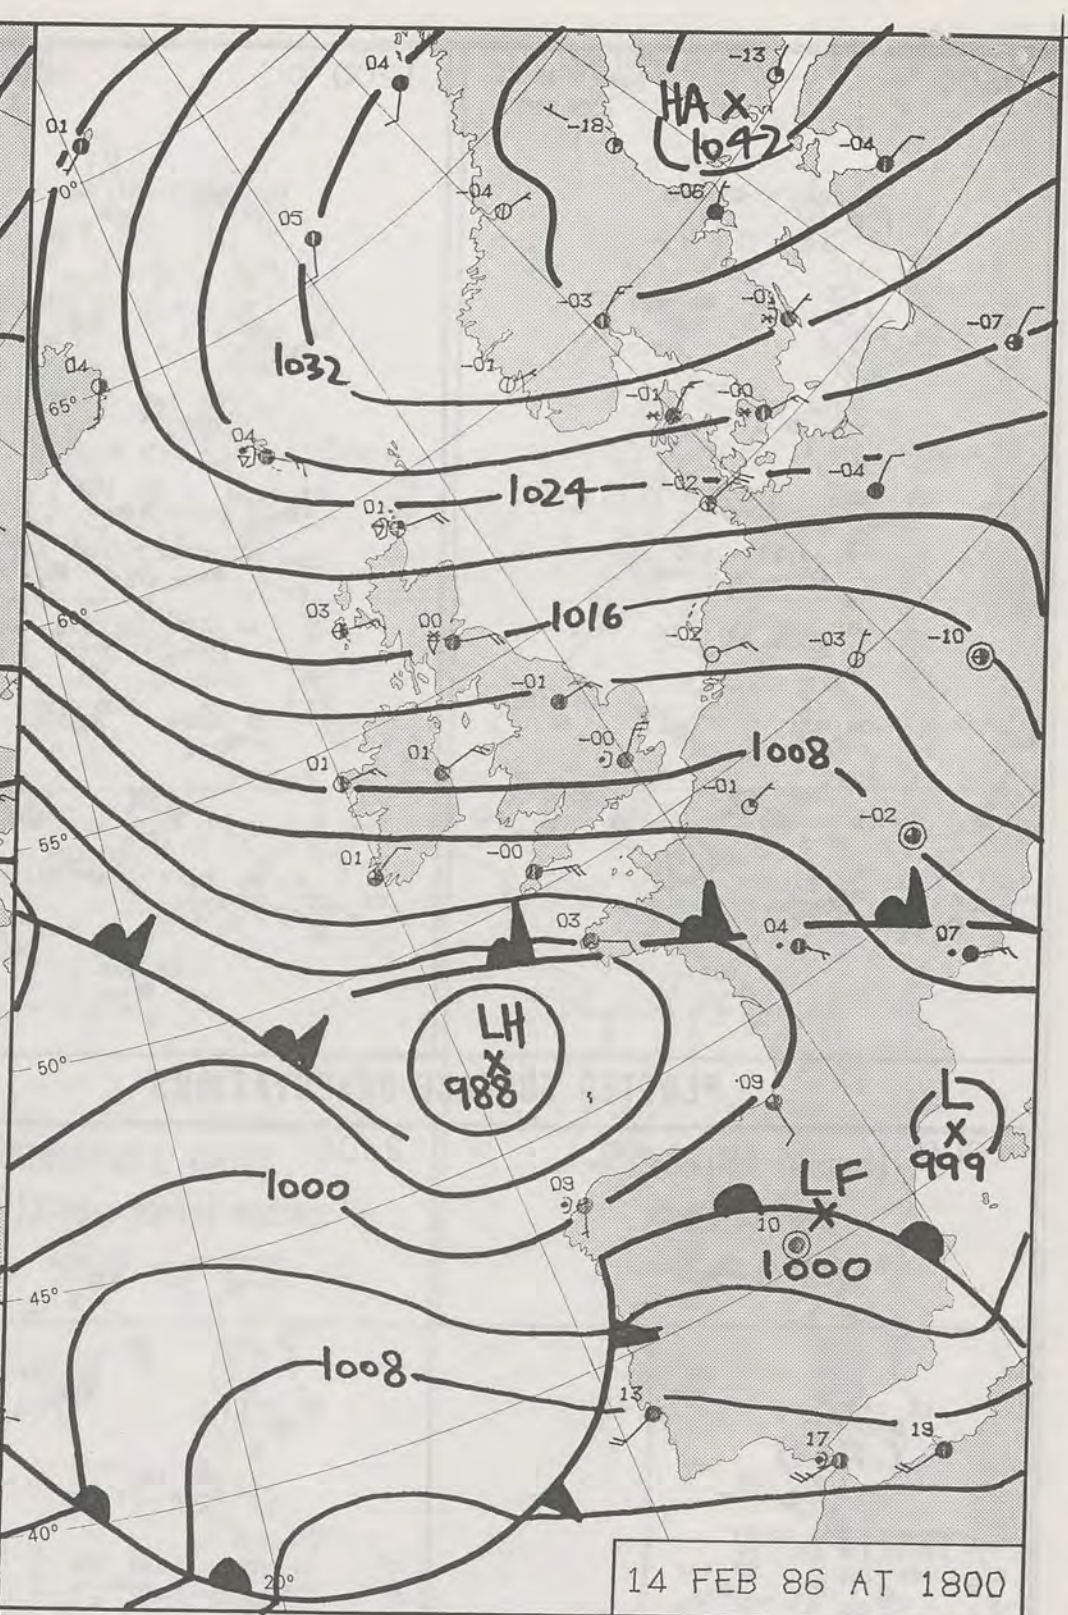 04
-13
HA X
1042
01
70°
-18
-04
-04
-06
05
-03
-01
-07
1032
04
65°
-01
-01
-00
04
1024
-02
-04
01
60°
03
00
1016
-02
-03
-10
-01
-00
1008
01
01
-01
-02
55°
01
-00
03
04
07
50°
LH
X
988
09
L
X
999
1000
09
LF
X
10
1000
45°
1008
13
17
19
40°
20°
14 FEB 86 AT 1800